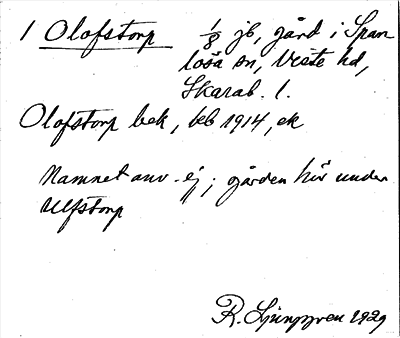 1 Olofstorp 1/8 jb, gård i Span
lösa sn, Viste hd,
Skarab. l.
Olofstorp bek, kb 1914, ek
Namnet anv. ej; gården hör under
Ulfstorp
R. Ljunggren 1929